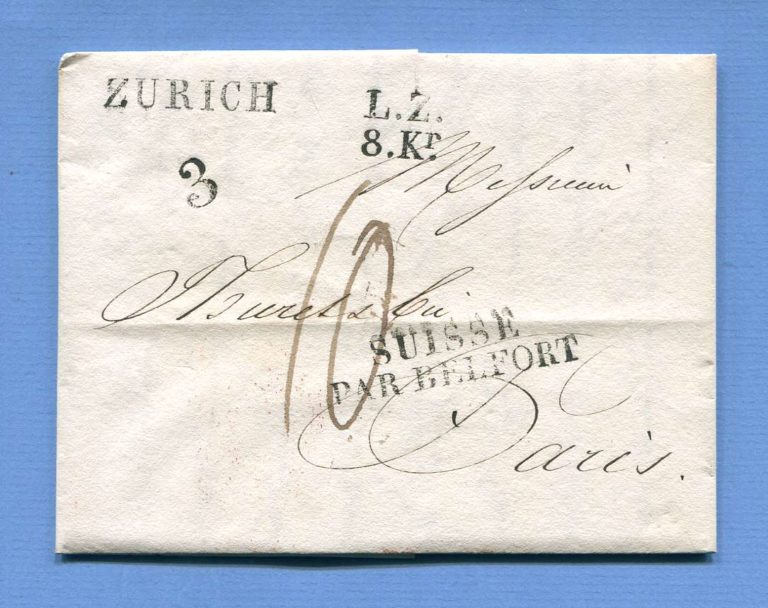 ZURICH
L.Z.
8.Kr.
3
Messieurs
Thuret & Cie
10
SUISSE
PAR BELFORT
Paris.